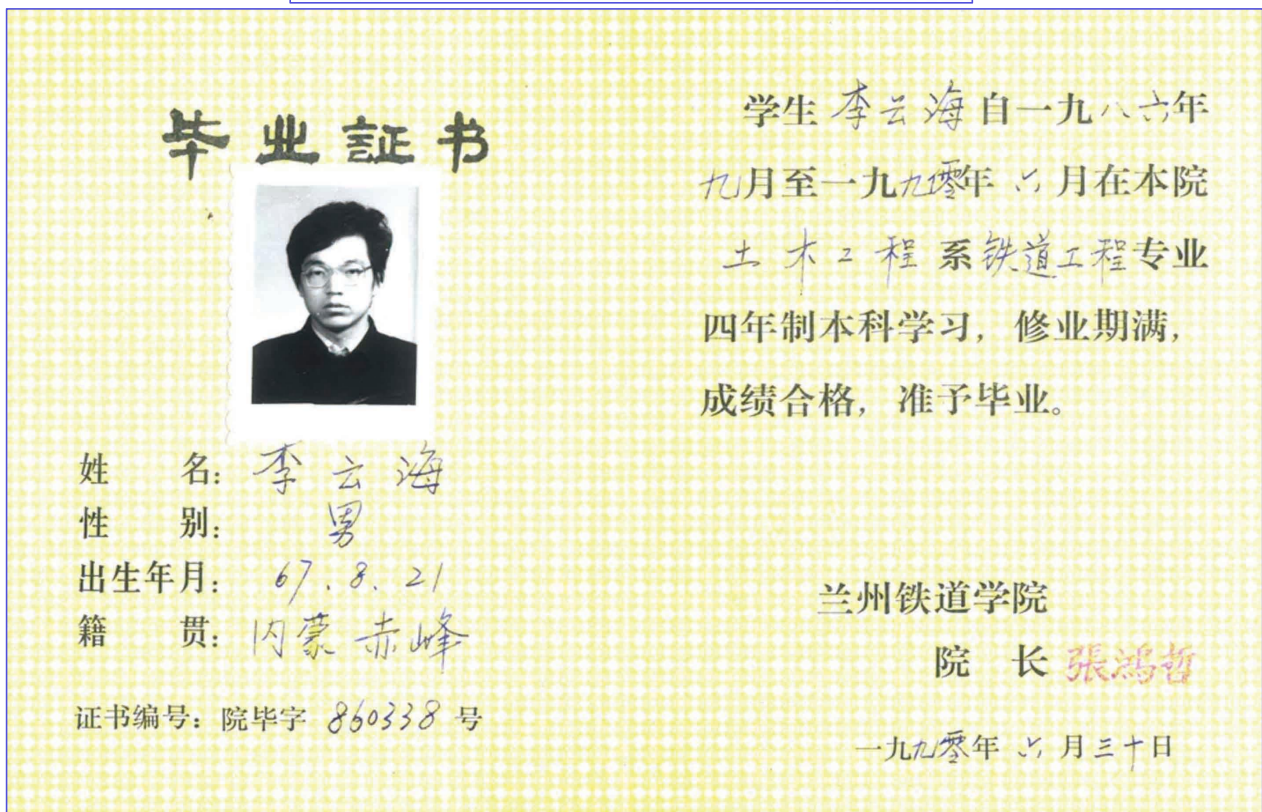 毕业証书
姓 名：李云海
性 别：男
出生年月：67.8.21
籍 贯：内蒙赤峰
证书编号：院毕字 860338 号
学生李云海自一九八六年
九月至一九九零年六月在本院
土木工程系铁道工程专业
四年制本科学习，修业期满，
成绩合格，准予毕业。
兰州铁道学院
院 长 張鴻哲
一九九零年六月三十日